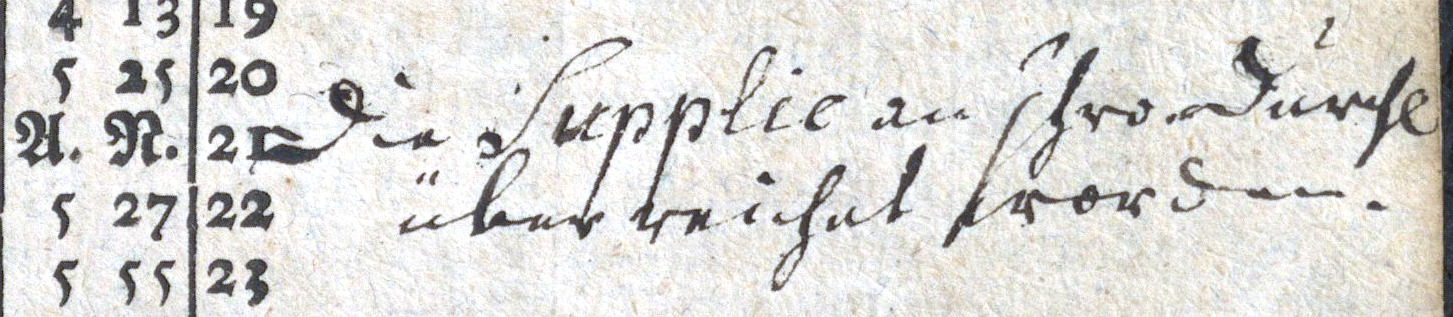 4 13 19
5 25 20
A. N. 21 Die Supplic an Ihro Durchl
5 27 22 überreichet worden.
5 55 23